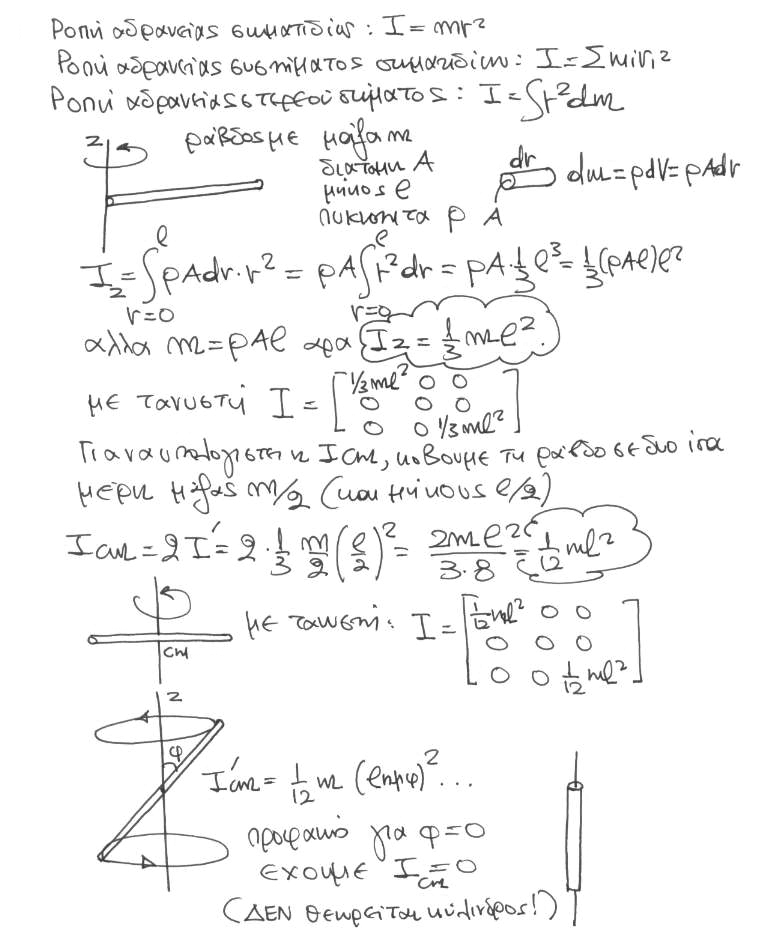 Ροπή αδράνειας σωματιδίου : I = mr²
Ροπή αδράνειας συστήματος σωματιδίων : I = Σmiri²
Ροπή αδράνειας στερεού σώματος : I = ∫r²dm
z ράβδος με μάζα m
διατομή A
μήκος ℓ
πυκνότητα ρ
dr
A
dm = ρdV = ρAdr
I_z = ∫_{r=0}^{ℓ} ρAdr·r² = ρA∫_{r=0}^{ℓ} r²dr = ρA·⅓ℓ³ = ⅓(ρAℓ)ℓ²
αλλα m = ρAℓ αρα I_z = ⅓mℓ².
με τανυστή I = [⅓mℓ² 0 0
0 0 0
0 0 ⅓mℓ²]
Για να υπολογιστεί η Icm, κοβουμε τη ραβδο σε δυο ίσα
μέρη μάζας m/2 (και μήκους ℓ/2)
Icm = 2I′ = 2·⅓ m/2 (ℓ/2)² = 2mℓ²/3·8 = 1/12 mℓ²
cm
με τανυστή: I = [1/12 mℓ² 0 0
0 0 0
0 0 1/12 mℓ²]
z
φ
I′cm = 1/12 m (ℓημφ)² ...
προφανώ για φ=0
εχουμε Icm = 0
(ΔΕΝ θεωρείται κύλινδρος!)